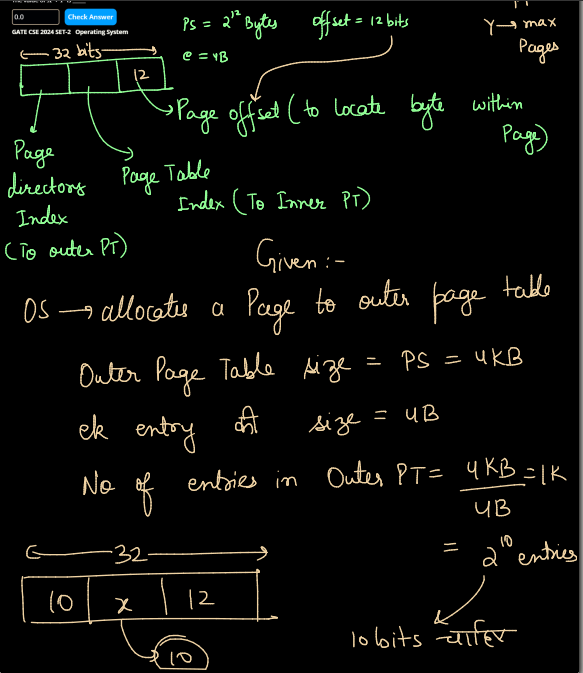 0.0 Check Answer
GATE CSE 2024 SET-2 Operating System
PS = 2^12 Bytes offset = 12 bits
Y → max
Pages
e = 4B
32 bits
12
Page offset (to locate byte within
Page)
Page
directory
Index
(To outer PT)
Page Table
Index (To Inner PT)
Given :-
OS → allocates a Page to outer page table
Outer Page Table size = PS = 4KB
ek entry की size = 4B
No of entries in Outer PT = 4KB/4B = 1K
= 2^10 entries
32
10 x 12
10
10 bits चाहिए